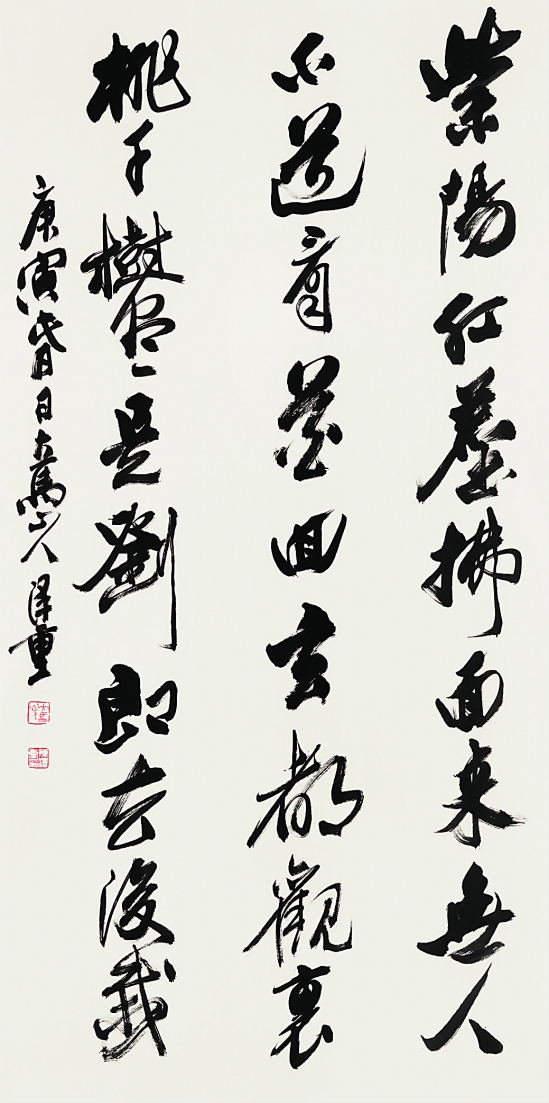 紫陽紅塵拂面来無人
不道看花回玄都觀裏
桃千樹盡是劉郎去後栽
庚寅春日山人